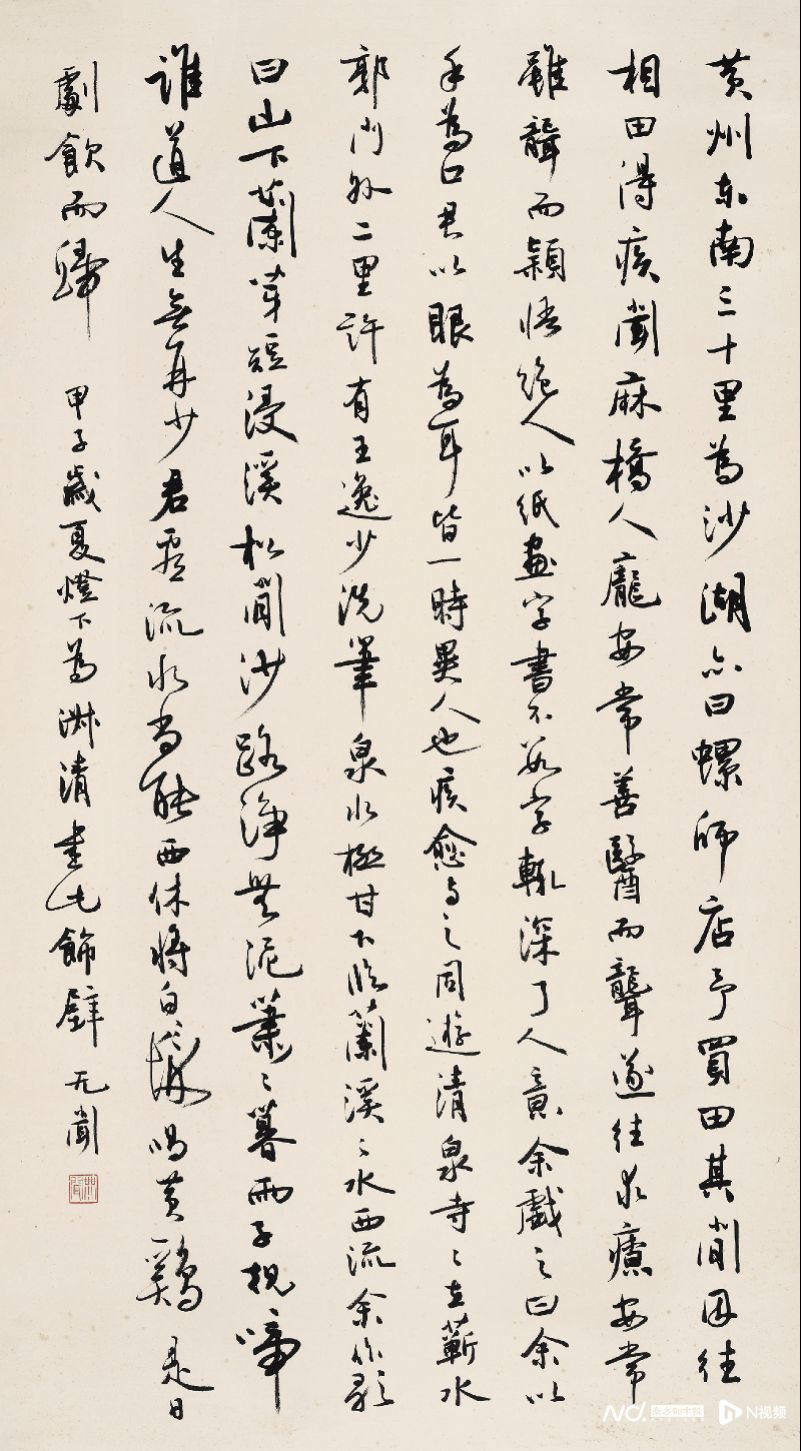 黄州东南三十里為沙湖亦曰螺师店予買田其間因往
相田得疾聞麻橋人龐安常善醫而聾遂往求療安常
雖聾而穎悟絶人以紙畫字書不數字輒深了人意余戲之曰余以
手為口君以眼為耳皆一時異人也疾愈与之同遊清泉寺〻在蘄水
郭門外二里許有王逸少洗筆泉水極甘下臨蘭溪〻水西流余作歌
曰山下蘭芽短浸溪松間沙路浄無泥蕭〻暮雨子規啼
誰道人生無再少君看流水尚能西休將白髮唱黄鷄 是日
劇飲而歸 甲子歲夏燈下為淋清書此飾壁 无聞
N视频